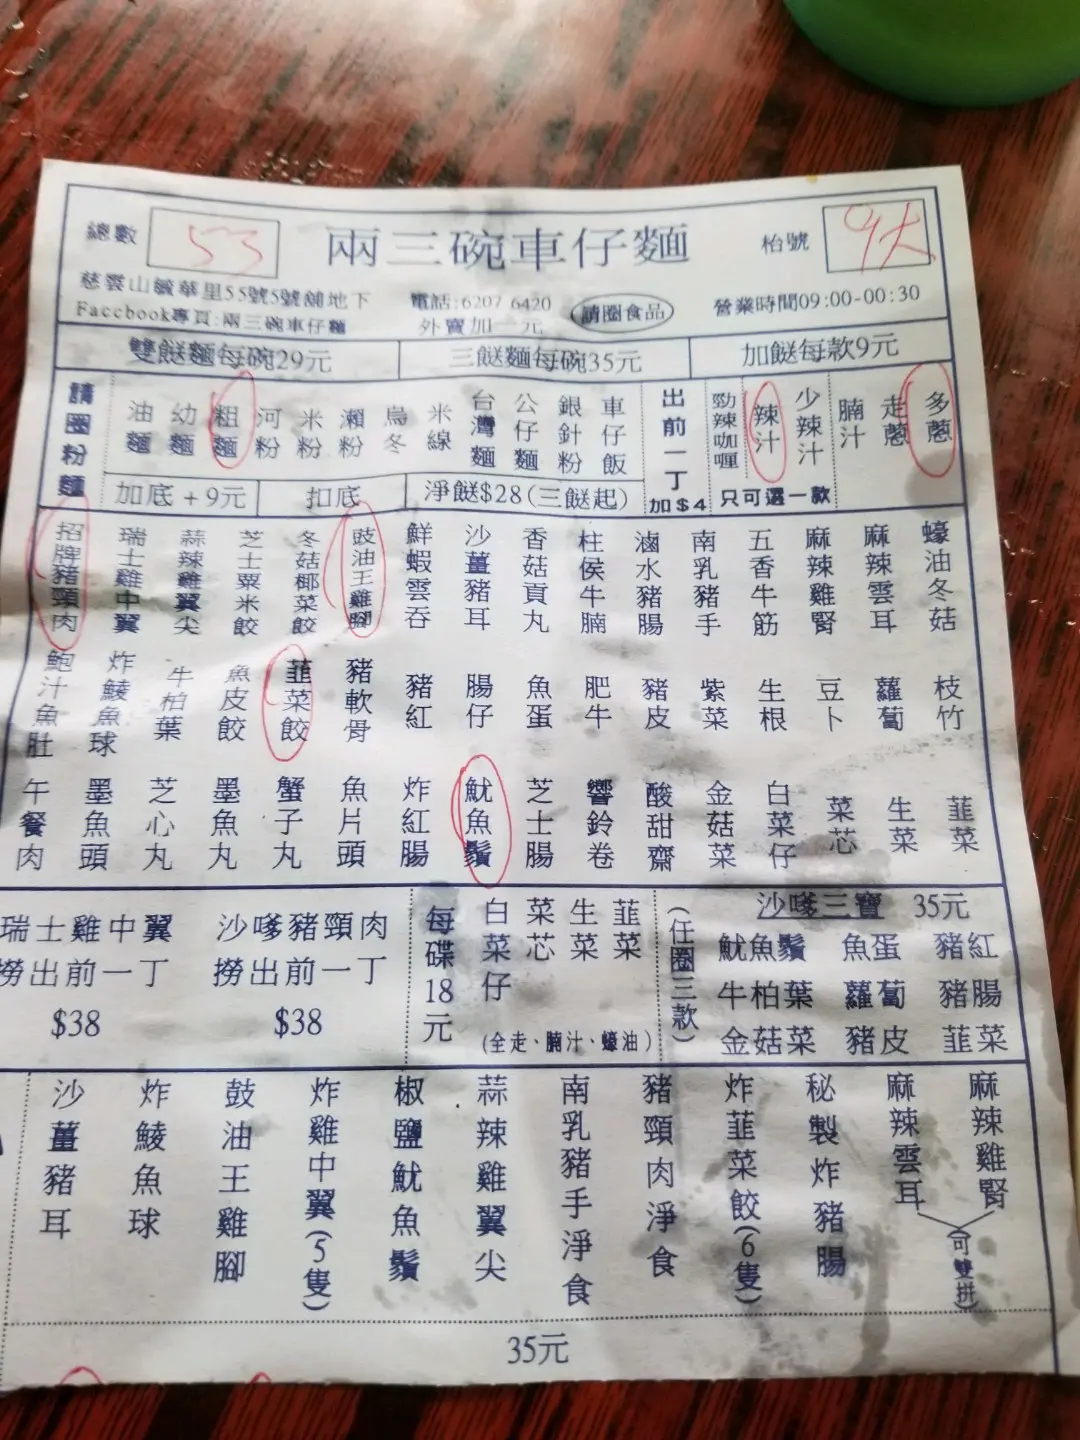 總數 53 兩三碗車仔麵 枱號 9大
慈雲山毓華里55號5號舖地下 電話:6207 6420 請圈食品 營業時間09:00-00:30
Facebook專頁:兩三碗車仔麵 外賣加一元
雙餸麵每碗29元 三餸麵每碗35元 加餸每款9元
請圈粉麵 油麵 幼麵 粗麵 河粉 米粉 瀨粉 烏冬 米線 台灣麵 公仔麵 銀針粉 車仔飯 出前一丁加$4 勁辣咖喱 辣汁 少辣汁 腩汁 走蔥 多蔥
加底+9元 扣底 淨餸$28(三餸起) 只可選一款
招牌豬頸肉 瑞士雞中翼 蒜辣雞翼尖 芝士粟米餃 冬菇椰菜餃 豉油王雞腳 鮮蝦雲吞 沙薑豬耳 香菇貢丸 柱侯牛腩 滷水豬腸 南乳豬手 五香牛筋 麻辣雞腎 麻辣雲耳 蠔油冬菇
鮑汁魚肚 炸鯪魚球 牛柏葉 魚皮餃 韮菜餃 豬軟骨 豬紅 腸仔 魚蛋 肥牛 豬皮 紫菜 生根 豆卜 蘿蔔 枝竹
午餐肉 墨魚頭 芝心丸 墨魚丸 蟹子丸 魚片頭 炸紅腸 魷魚鬚 芝士腸 響鈴卷 酸甜齋 金菇菜 白菜仔 菜芯 生菜 韮菜
瑞士雞中翼
撈出前一丁
$38
沙嗲豬頸肉
撈出前一丁
$38
每碟18元 白菜仔 菜芯 生菜 韮菜
(全走、腩汁、蠔油)
(任圈三款) 沙嗲三寶 35元
魷魚鬚 魚蛋 豬紅
牛柏葉 蘿蔔 豬腸
金菇菜 豬皮 韮菜
沙薑豬耳 炸鯪魚球 鼓油王雞腳 炸雞中翼(5隻) 椒鹽魷魚鬚 蒜辣雞翼尖 南乳豬手淨食 豬頸肉淨食 炸韮菜餃(6隻) 秘製炸豬腸 麻辣雲耳 麻辣雞腎
(可雙拼)
35元